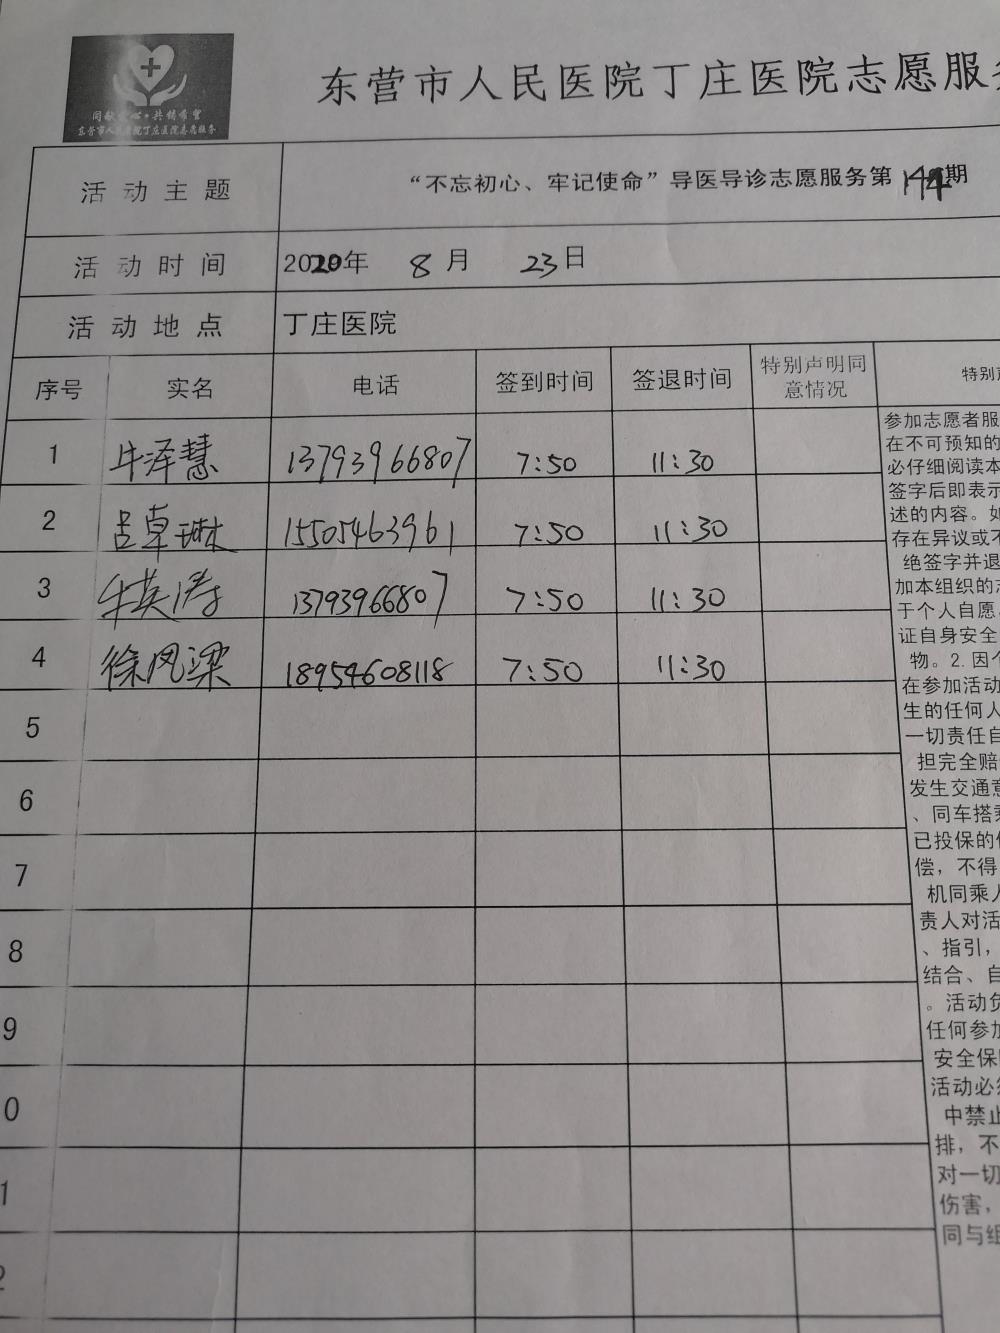 东营市人民医院丁庄医院志愿服
东营市人民医院丁庄医院志愿服务
活动主题 “不忘初心、牢记使命”导医导诊志愿服务第144期
活动时间 2020年 8月 23日
活动地点 丁庄医院
序号 实名 电话 签到时间 签退时间 特别声明同意情况 特别
1 牛泽慧 13793966807 7:50 11:30
2 吕卓琳 15505463961 7:50 11:30
3 牛英涛 13793966807 7:50 11:30
4 徐凤梁 18954608118 7:50 11:30
5
6
7
8
9
0
1
2
参加志愿者服
在不可预知的
必仔细阅读本
签字后即表示
述的内容。如
存在异议或不
绝签字并退
加本组织的志
于个人自愿
证自身安全
物。2.因个
在参加活动
生的任何人
一切责任自
担完全赔
发生交通意
、同车搭乘
已投保的
偿，不得
机同乘人
责人对活
、指引，
结合、自
。活动负
任何参加
安全保障
活动必须
中禁止
排，不
对一切
伤害，
同与组